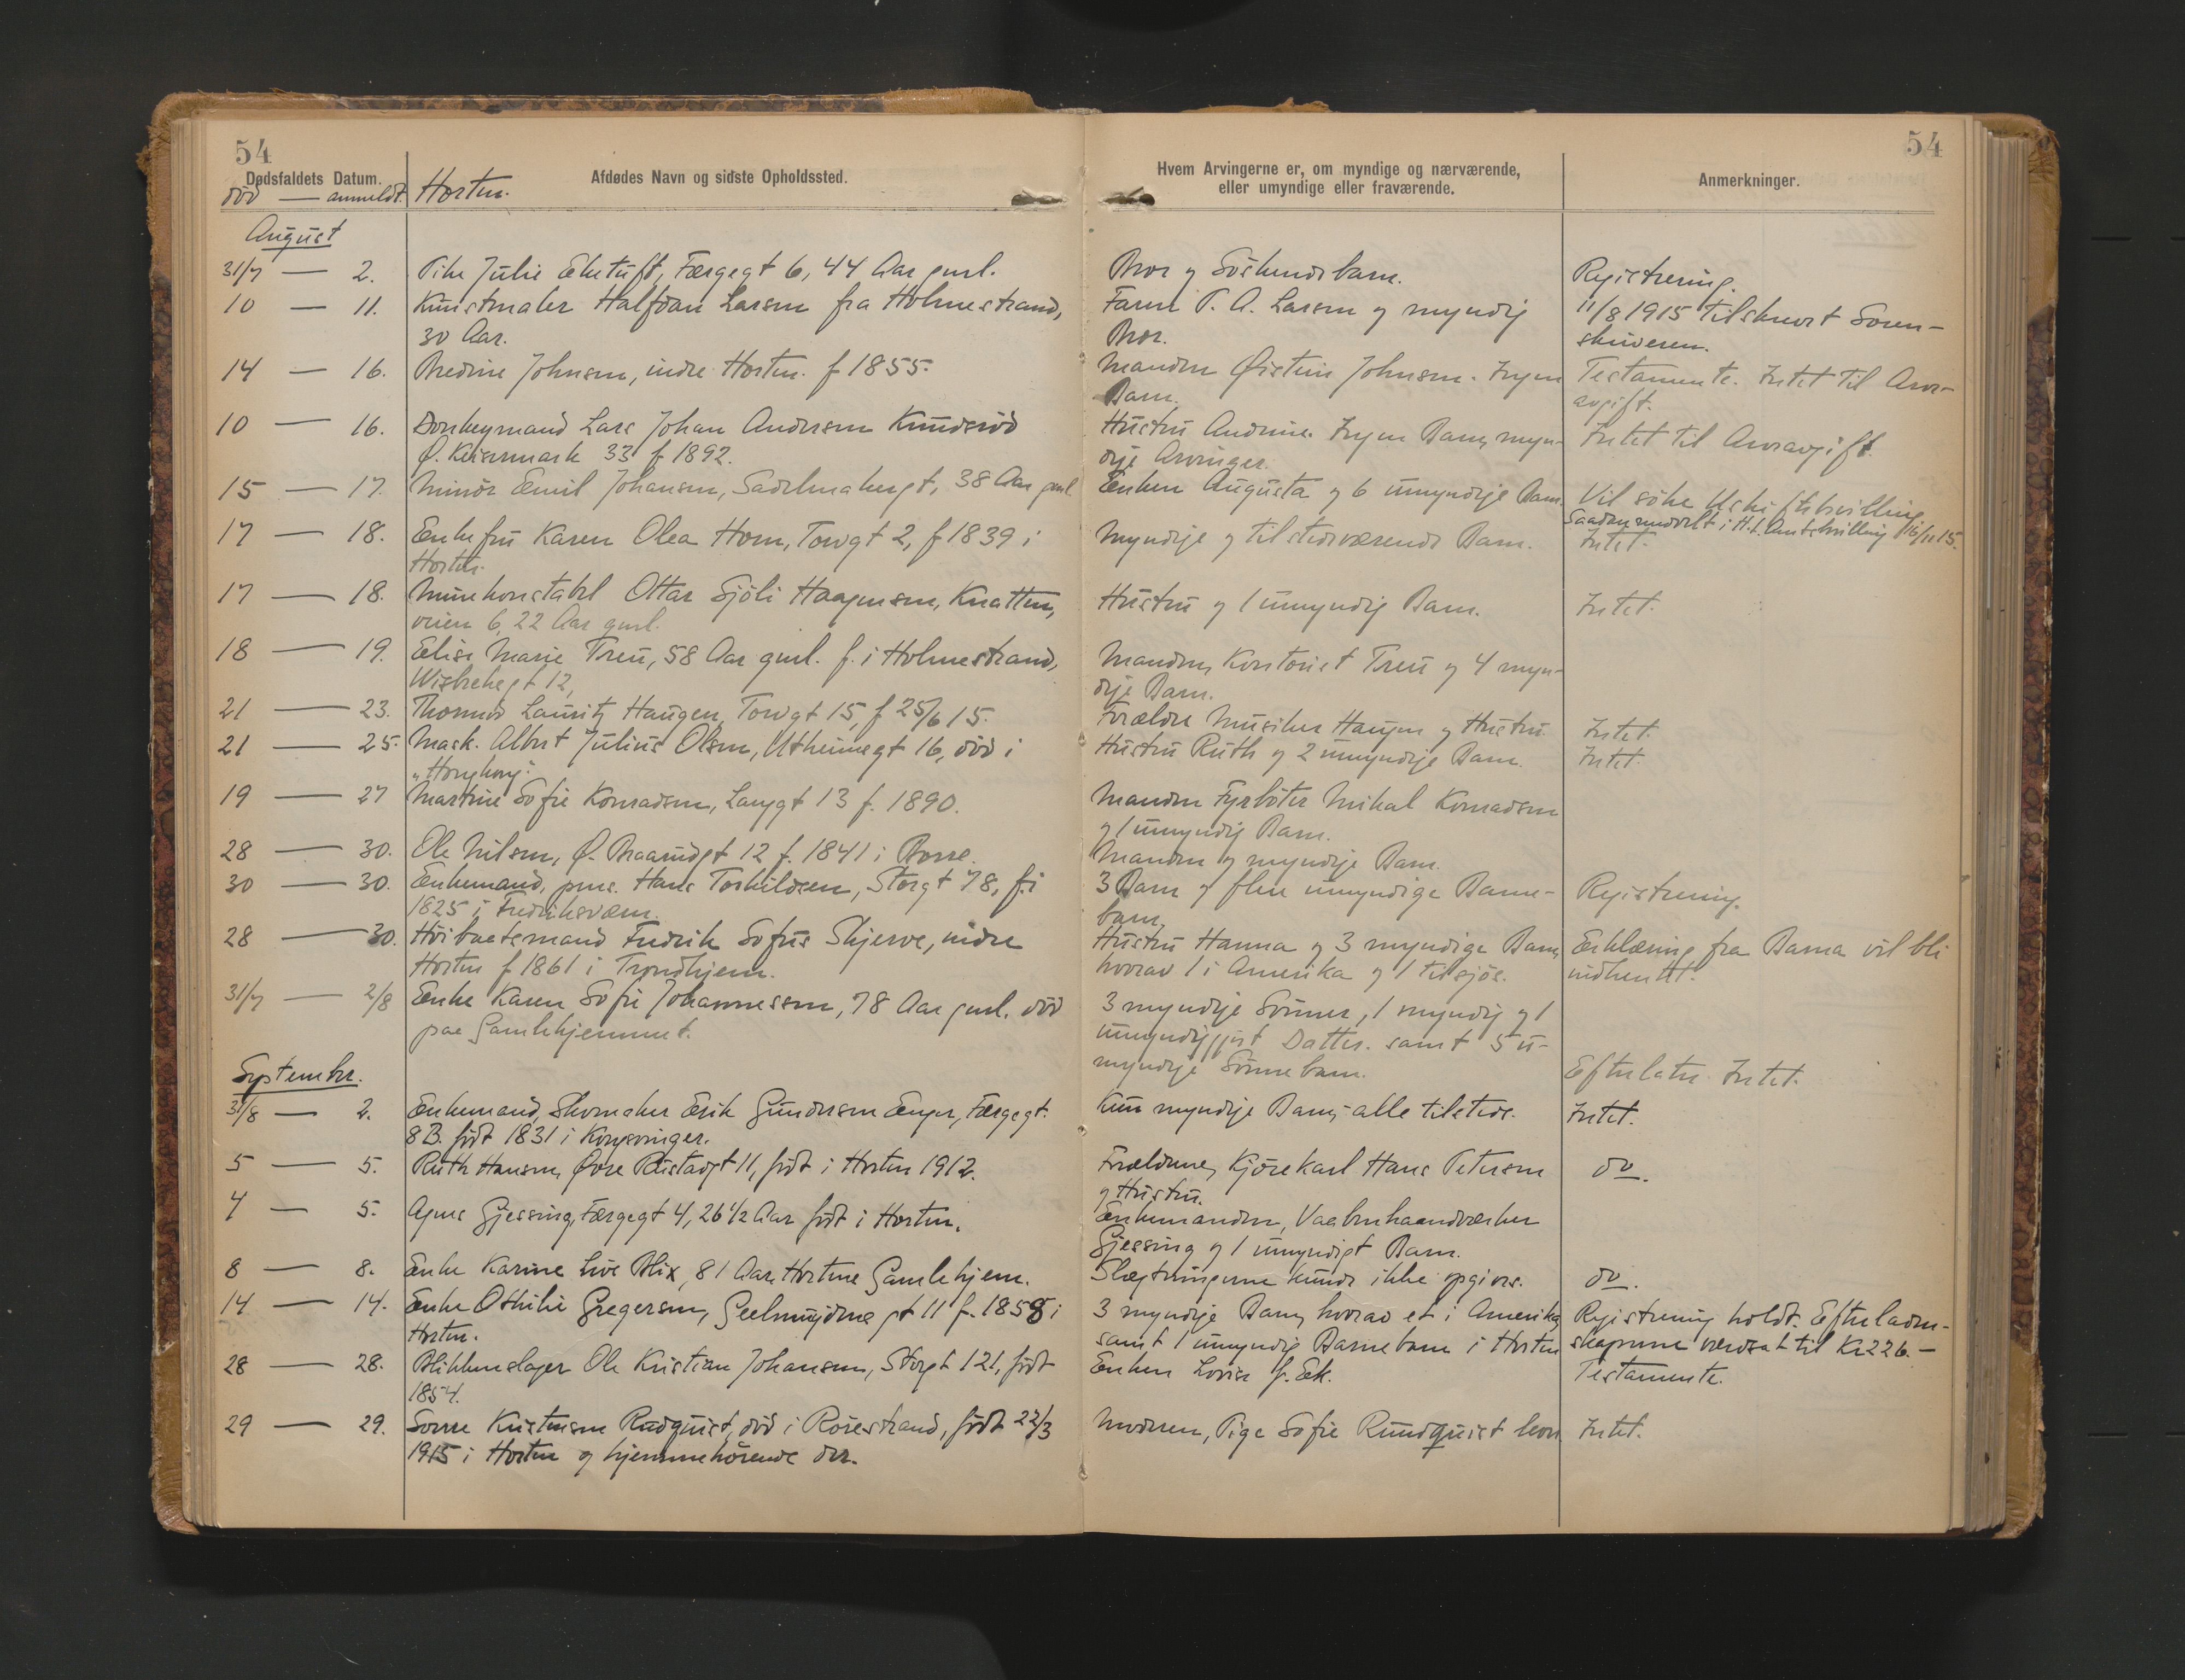 54
54
Dødsfaldets Datum.
Afdødes Navn og sidste Opholdssted.
Hvem Arvingerne er, om myndige og nærværende,
eller umyndige eller fraværende.
Anmerkninger.
død — anmeldt. Horten.
August
31/7 — 2. Pike Julie Eketuft, Færgegt 6, 44 Aar gml. Bror og Söskendebarn. Registrering.
10 — 11. Kunstmaler Halfdan Larsen fra Holmestrand, Faren P. A. Larsen og myndig 11/8 1915 tilskrevt Soren-
30 Aar. Bror. skriveren.
14 — 16. Bredine Johnsen, indre Horten. f 1855. Manden Øistein Johnsen. Ingen Testamente. Intet til Arve-
Barn. avgift.
10 — 16. Donkeymand Lars Johan Andersen Knudsröd Hustru Andrine. Ingen Barn, myn- Intet til Arveavgift.
Ø. Keisermark 33 f 1892. dige Arvinger.
15 — 17. Minör Emil Johansen, Sadelmakergt, 38 Aar gml. Enken Augusta og 6 umyndige Barn. Vil söke Uskiftebevilling
Saadan meddelt i H.t. Amtsbevilling 16/11 15.
17 — 18. Enkefru Karen Olea Horn, Torvgt 2, f 1839 i Myndige og tilstedeværende Barn. Intet.
Horten.
17 — 18. Minekonstabel Ottar Sjöli Haagensen, Knatten, Hustru og 1 umyndig Barn. Intet.
veien 6, 22 Aar gml.
18 — 19. Elise Marie Treu, 58 Aar gml. f. i Holmestrand, Manden, Kontorist Treu og 4 myn-
Wisbekegt 12, dige Barn.
21 — 23. Thomas Lauritz Haugen, Torvgt 15, f 25/6 15. Forældre Musiker Haugen og Hustru Intet.
21 — 25. Mask. Albert Julius Olsen, Utheimsgt 16, död i Hustru Ruth og 2 umyndige Barn. Intet.
"Hongkong".
19 — 27 Martine Sofie Konradsen, Langgt 13 f. 1890. Manden Fyrböter Mikal Konradsen
og 1 umyndig Barn.
28 — 30. Ole Nilsen, Ø. Braarudgt 12 f. 1841 i Borre. Manden og myndige Barn.
30 — 30. Enkemand, pens. Hans Torkildsen, Storgt 78, f. i 3 Barn og flere umyndige Barne- Registrering.
1825 i Fredriksværn. barn,
28 — 30. Höibaatsmand Fredrik Sofus Skjerve, indre Hustru Hanna og 3 myndige Barn, Erklæring fra Barna vil bli
Horten f 1861 i Trondhjem. hvorav 1 i Amerika og 1 tilsjös. indhentet.
31/7 — 2/8 Enke Karen Sofie Johannessen, 78 Aar gml. död 3 myndige Sönner, 1 myndig og 1
paa Gamlehjemmet. umyndiggjort Datter. samt 5 u-
myndige Sönnebarn. Efterlater Intet.
September.
31/8 — 2. Enkemand, Skomaker Erik Gundersen Enger, Færgegt. Kun myndige Barn, alle tilstede. Intet.
8B. födt 1831 i Kongsvinger.
5 — 5. Ruth Hansen, Övre Rustadgt 11, födt i Horten 1912. Forældrene, Kjörekarl Hans Petersen do.
og Hustru.
4 — 5. Agnes Gjessing, Færgegt 4, 26 1/2 Aar födt i Horten. Enkemanden, Vaabenhaandverker
Gjessing og 1 umyndigt Barn.
8 — 8. Enke Karine Live Blix, 81 Aar Hortens Gamlehjem. Slægtningerne kunde ikke opgives. do.
14 — 14. Enke Othilie Gregersen, Geelmuydens gt 11 f. 1858 i 3 myndige Barn, hvorav et i Amerika Registrering holdt. Efterladen-
Horten. samt 1 umyndig Barnebarn i Horten skapene værdsat til Kr 226.-
28 — 28. Blikkenslager Ole Kristian Johansen, Storgt 121, födt Enken Lovise f. Ek. Testamente.
1854.
29 — 29. Sonre Kristensen Rudquist, död i Röiestrand, födt 22/3 Moderen, Pige Sofie Rundquist Intet.
1915 i Horten og hjemmehörende der.